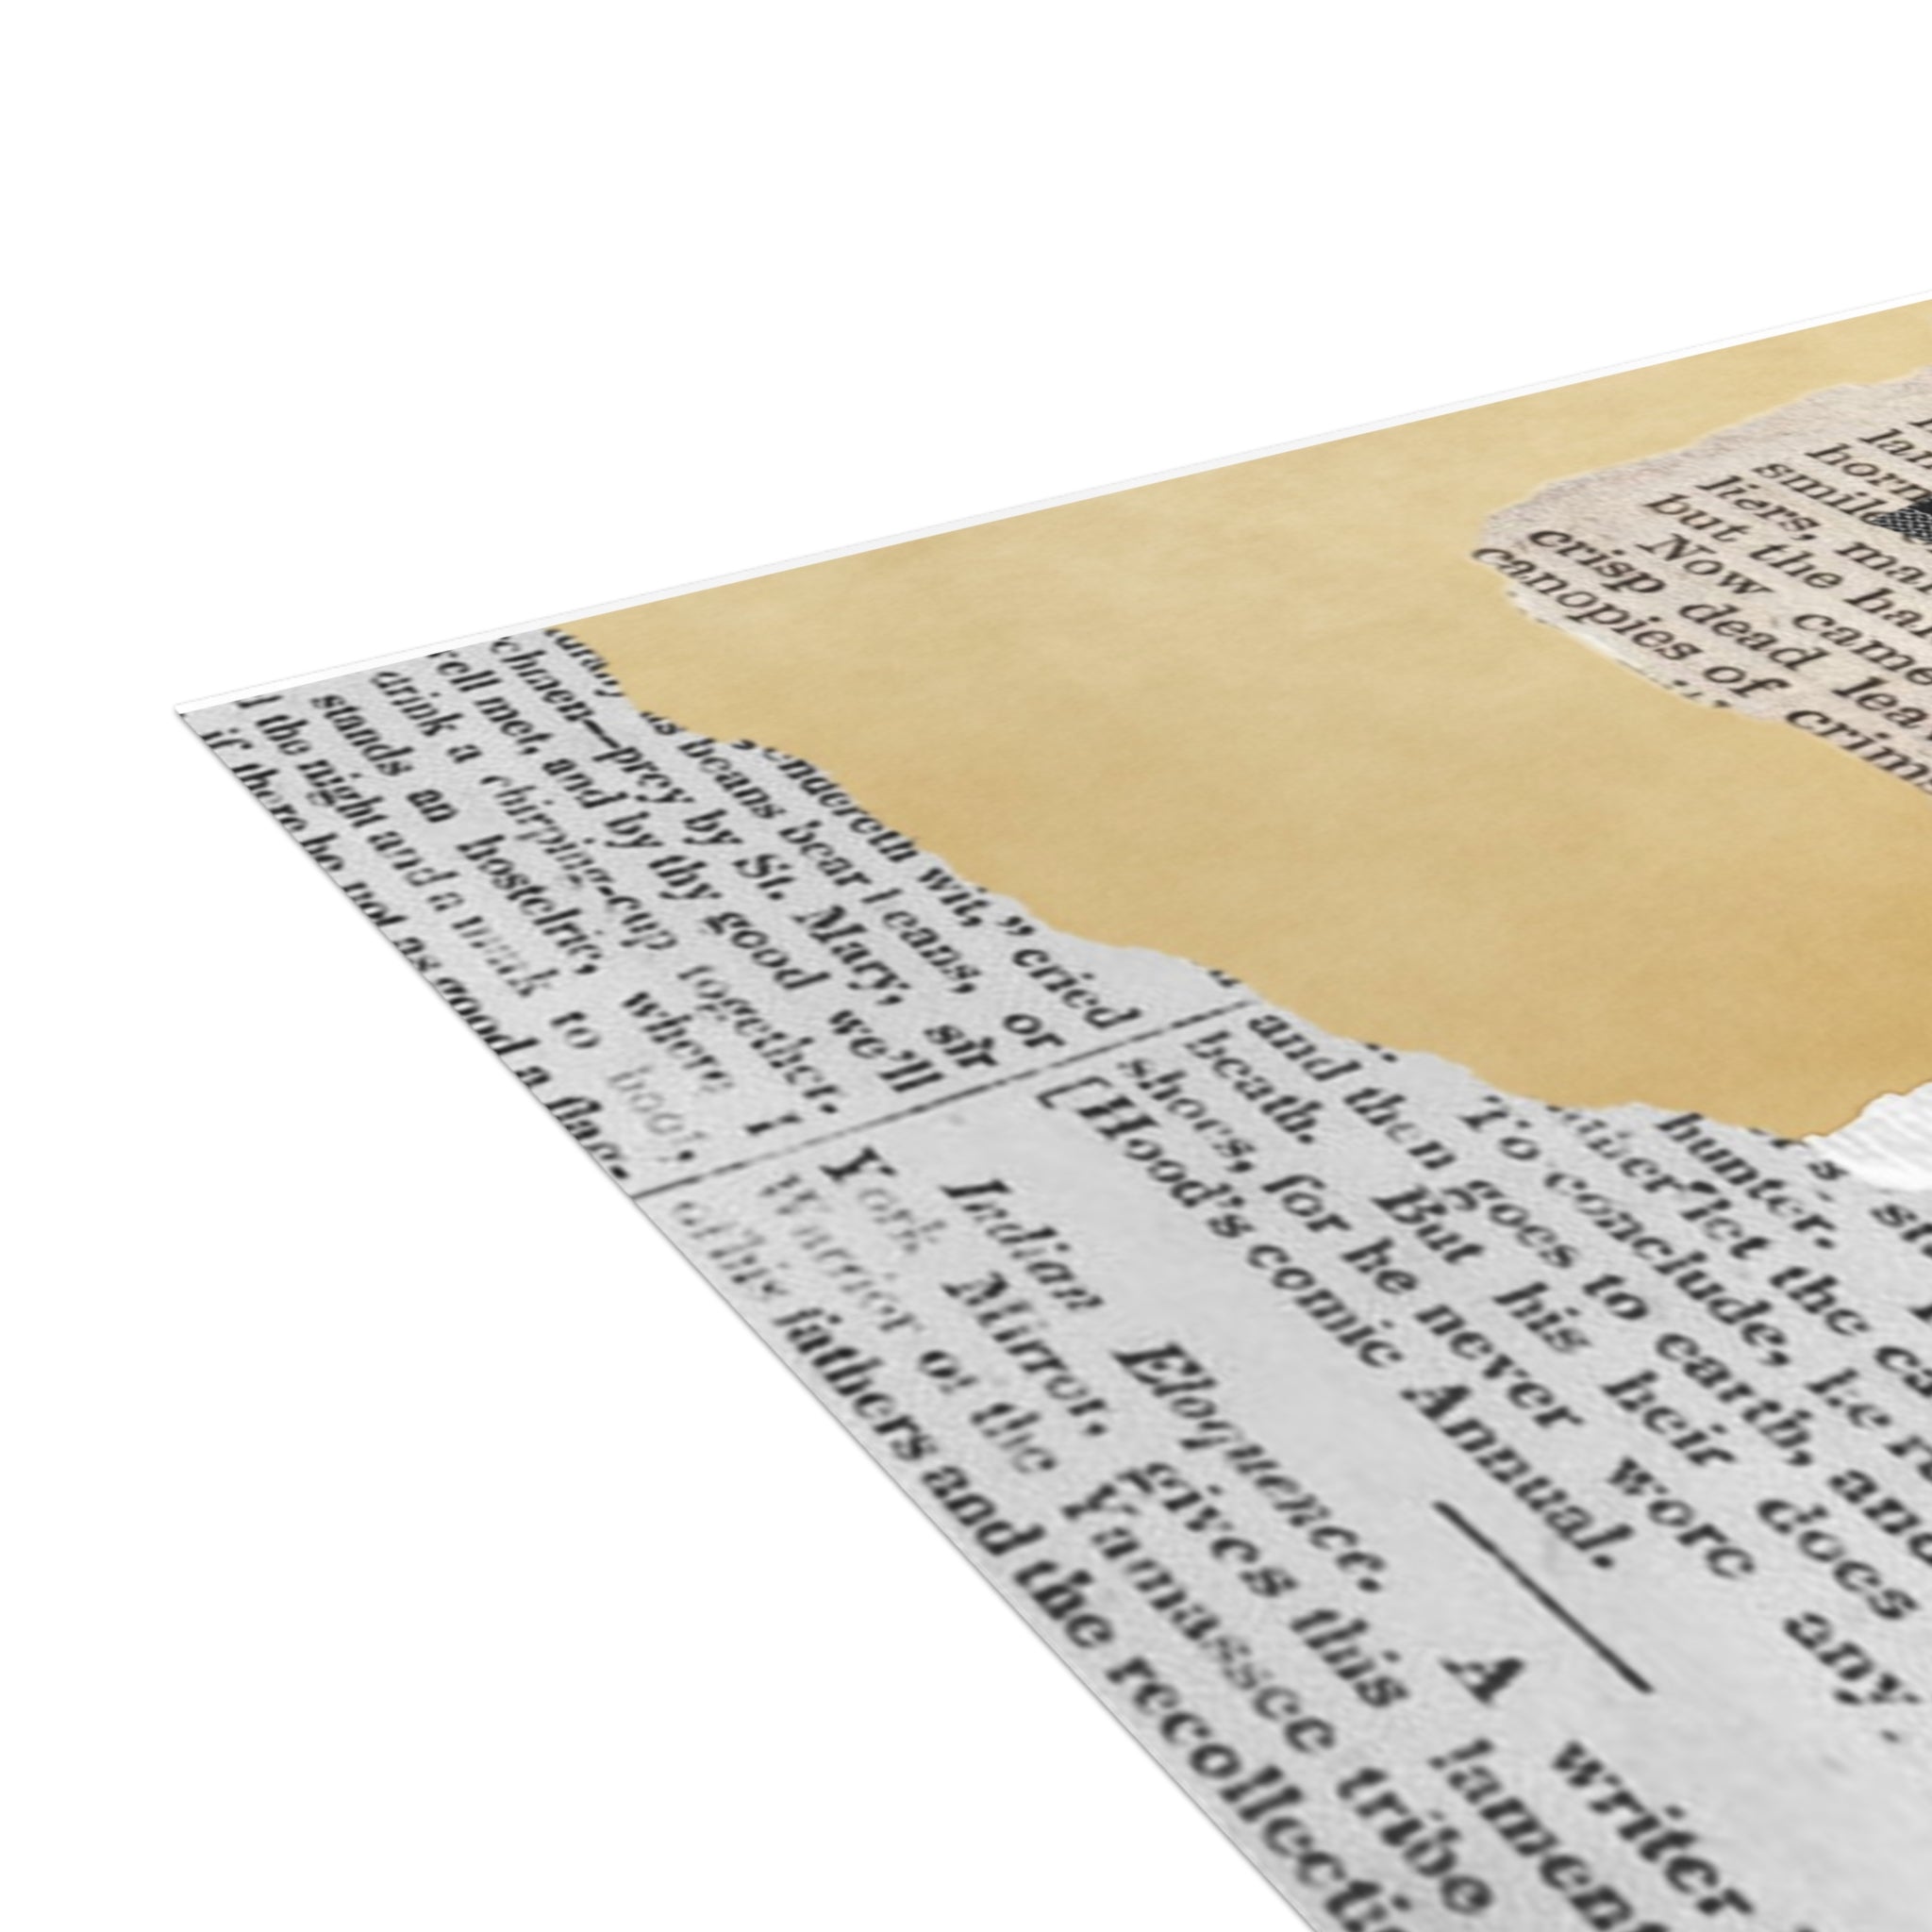 horn
smile
liers, ma
but the ha
Now came
crisp dead lea
canopies of crims
endereth wit," cried
as beans bear or
chmen—prey by St. Mary, sir
ell met, and by thy good we'll
drink a chirping-cup together.
stands an hostelrie, where I
the night and a to boot,
if there be not as good a
hunter.
let the ca
To conclude, he r
and then goes to earth, and
beath. But his heir does
shoes, for he never wore any.
[Hood's comic Annual.
Indian Eloquence. A writer
York Mirror, gives this lament
Warrior of the Yamassee tribe
of his fathers and the recollecti